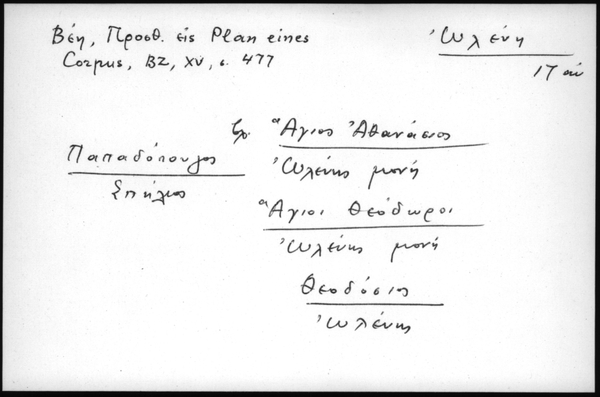 Βέη, Προσθ. εἰς Plan eines
Corpus, BZ, XV, σ. 477
Ὠλένη
17 αἰ
βλ. Ἅγιος Ἀθανάσιος
Ὠλένης μονή
Παπαδόπουλος
Σπήλιος
Ἅγιοι Θεόδωροι
Ὠλένης μονή
Θεοδόσιος
Ὠλένης